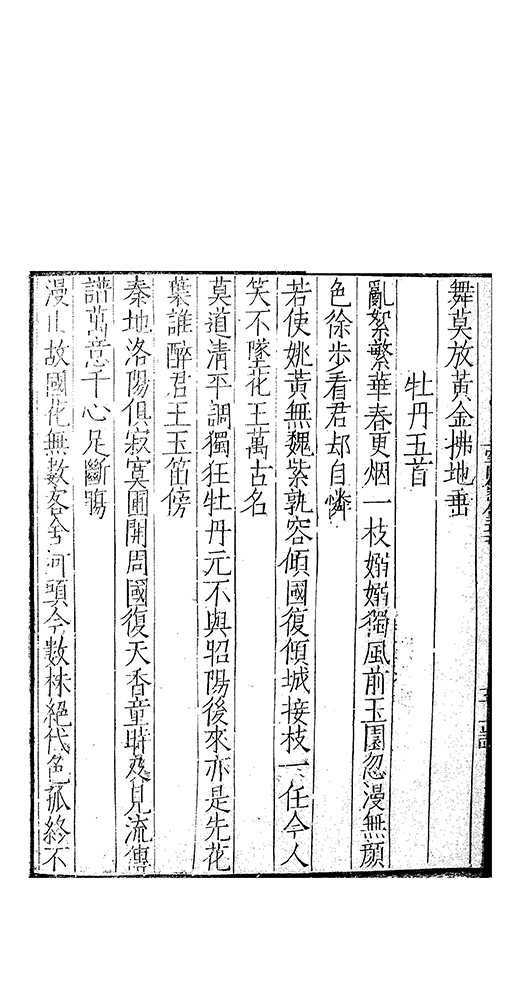 舞莫放黃金拂地垂
牡丹五首
亂絮繁華春更烟一枝媚媚獨風前玉園忽漫無顏
色徐步看君却自憐
若使姚黃無魏紫孰容傾國復傾城接枝一任令人
笑不墜花王萬古名
莫道清平調獨狂牡丹元不與昭陽後來亦是先花
葉誰醉君王玉笛傍
秦地洛陽俱寂寞圃開周國復天香童時及見流傳
譜萬意千心足斷腸
漫止故國花無數客舍河頭今數株絕代色孤終不